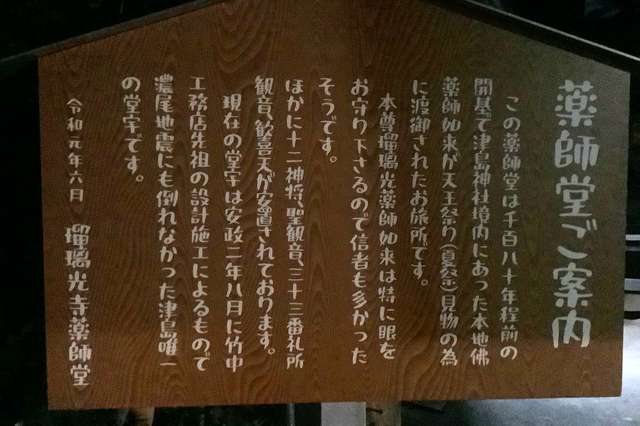 薬師堂ご案内
この薬師堂は千百八十年程前の
開基で津島神社境内にあった本地佛
薬師如来が天王祭り(夏祭)見物の為
に渡御されたお旅所です。
本尊瑠璃光薬師如来は特に眼を
お守り下さるので信者も多かった
そうです。
ほかに十二神将、聖観音、三十三番礼所
観音、歓喜天が安置されております。
現在の堂宇は安政二年八月に竹中
工務店先祖の設計施工によるもので
濃尾地震にも倒れなかった津島唯一
の堂宇です。
令和元年六月
瑠璃光寺薬師堂